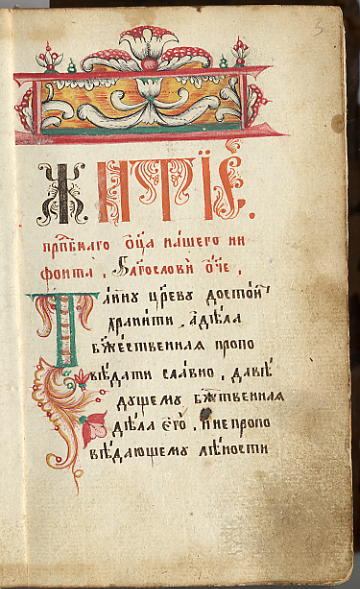 ЖИТІЕ.
прпⷣбнаго ѻ҃ца нашего ни
фонта , бл҃гослови ѻ҃че ,
Таину цр҃еву достоⷩ҇
хранити . а дѣла
бж҃ественная пропо
вѣдати славно , даві
душему бж҃твенная
дѣла єго̀ , и не пропо
вѣдающему лѣности